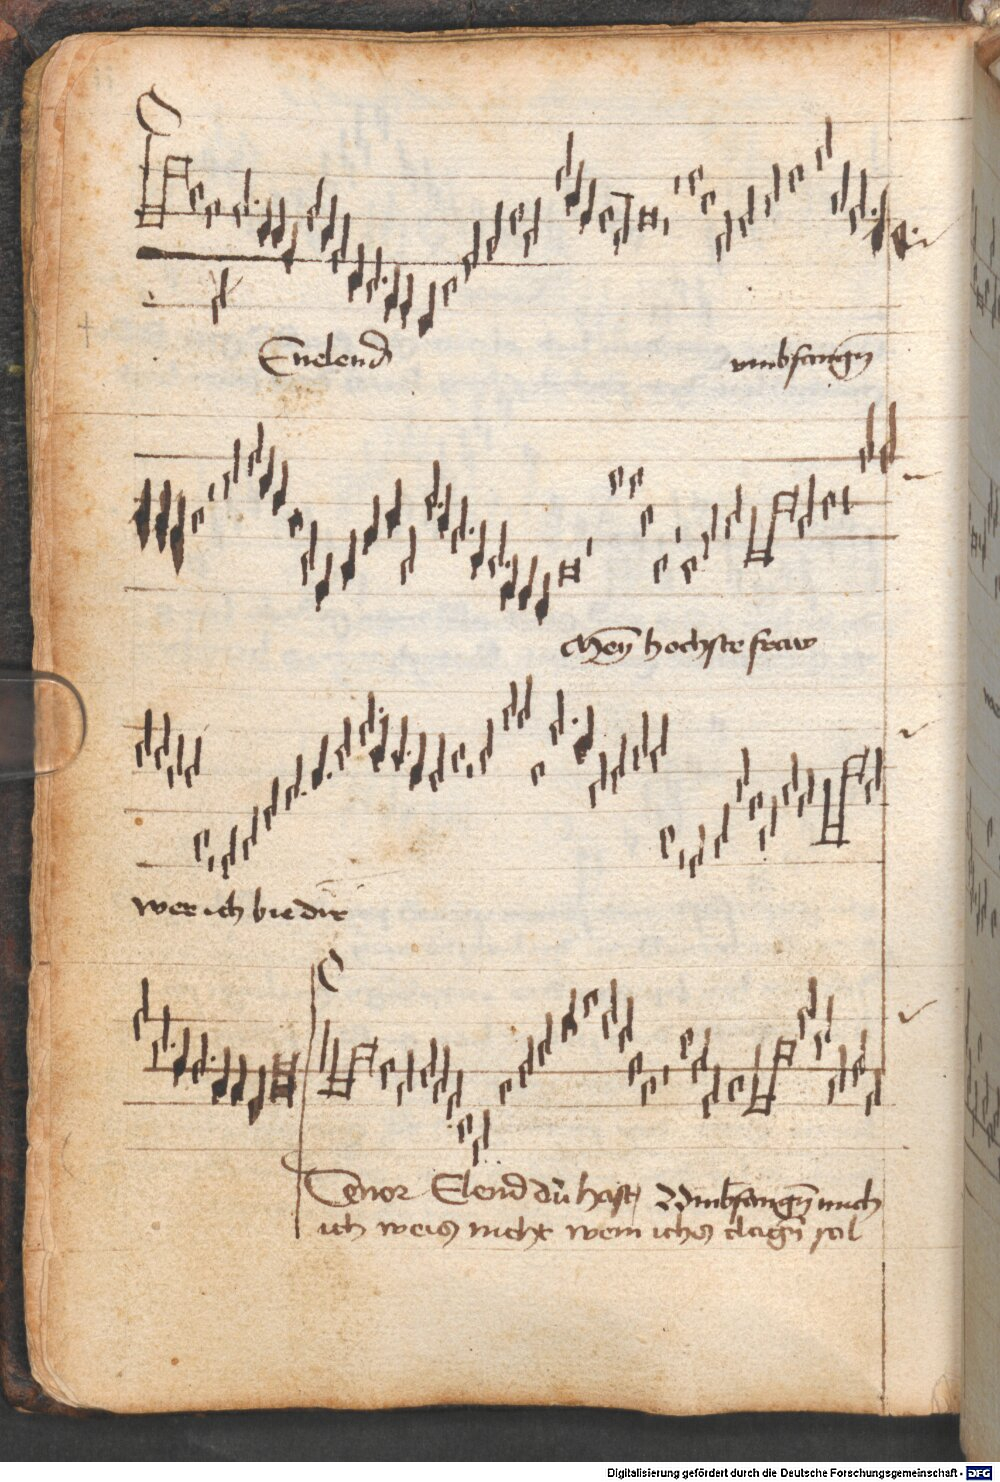 Enelend umbfangñ
Meÿ hochste fraw
wer ich bie dir
Tenor Elend dü hast Vmbfangñ mich
ich weis nicht wem ichs clagñ sol
Digitalisierung gefördert durch die Deutsche Forschungsgemeinschaft - DFG